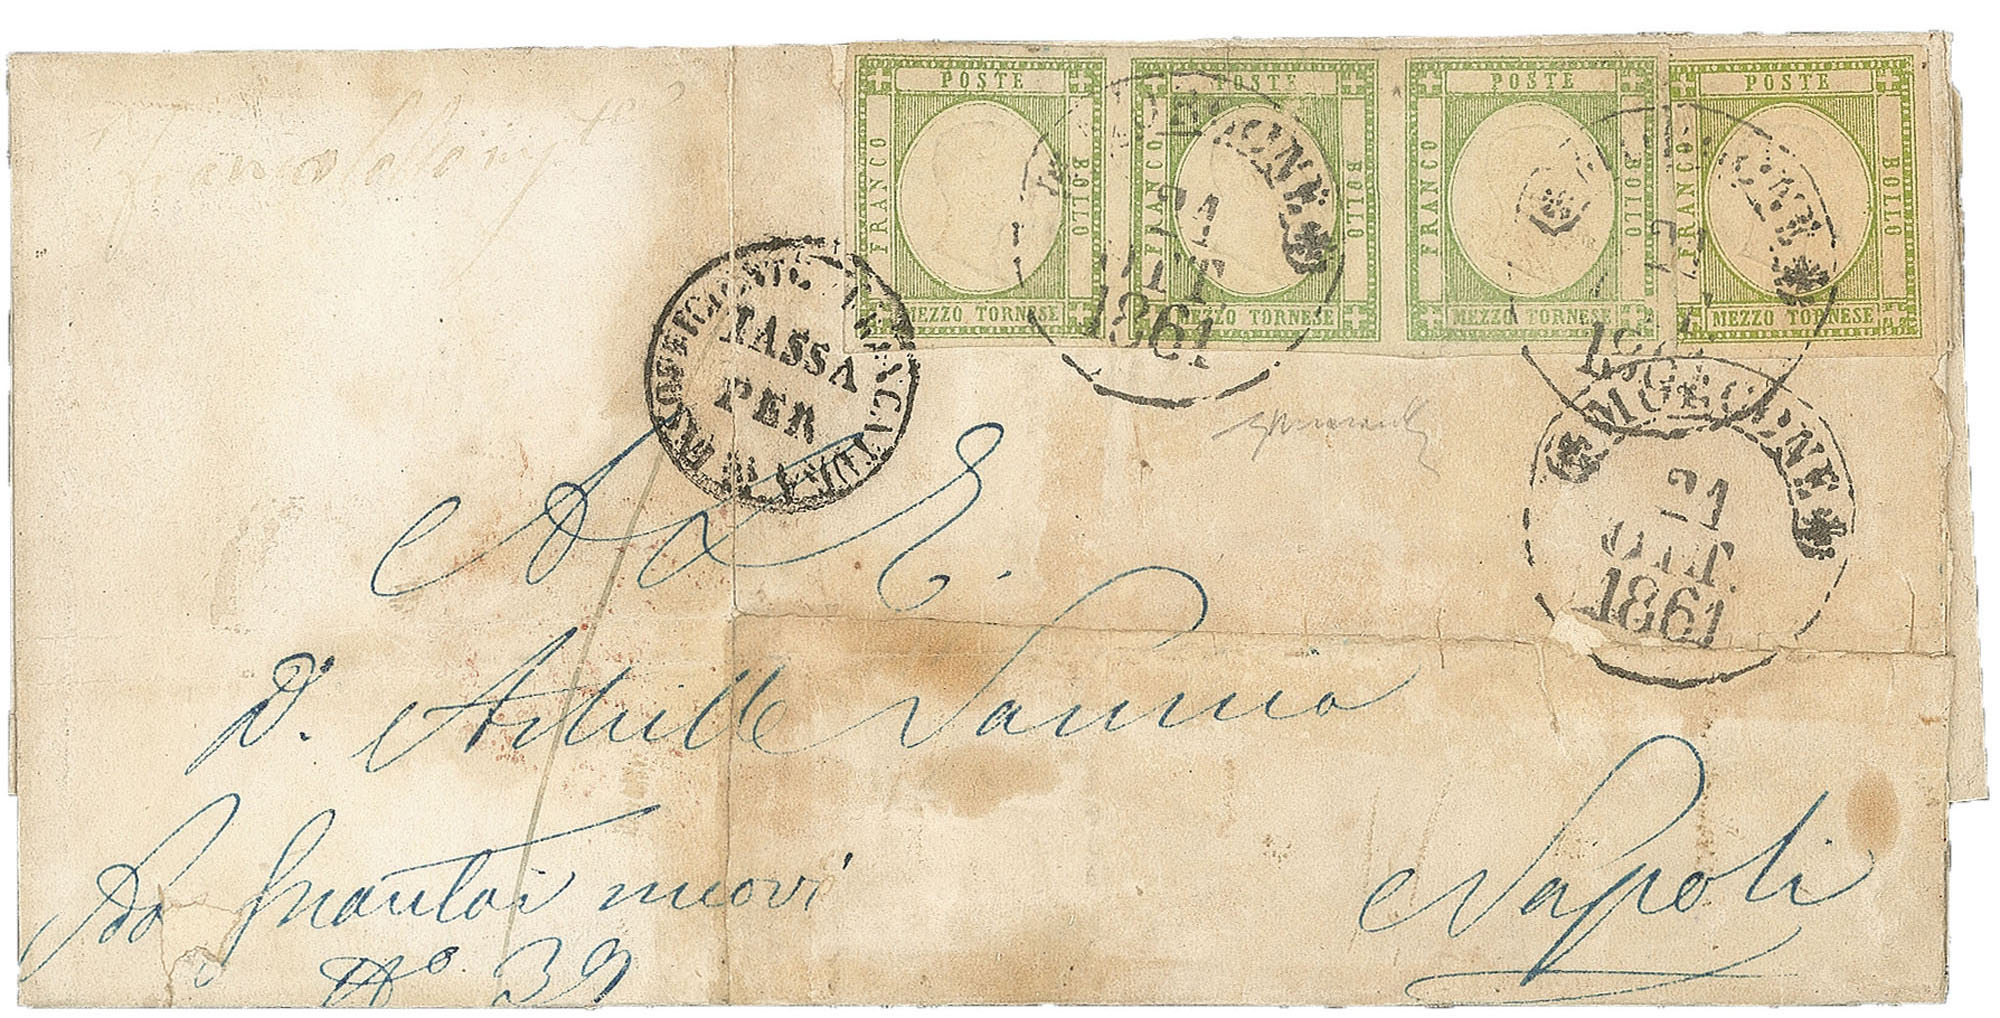 POSTE POSTE POSTE POSTE
FRANCO BOLLO FRANCO BOLLO FRANCO BOLLO FRANCO BOLLO
MEZZO TORNESE MEZZO TORNESE MEZZO TORNESE MEZZO TORNESE
21
OTT.
1861
TASSA
PER
FRANCATURA
MORCONE
21
OTT.
1861
A S. E.
D. Achille Sannia
Guantai nuovi
N.º 39
Napoli